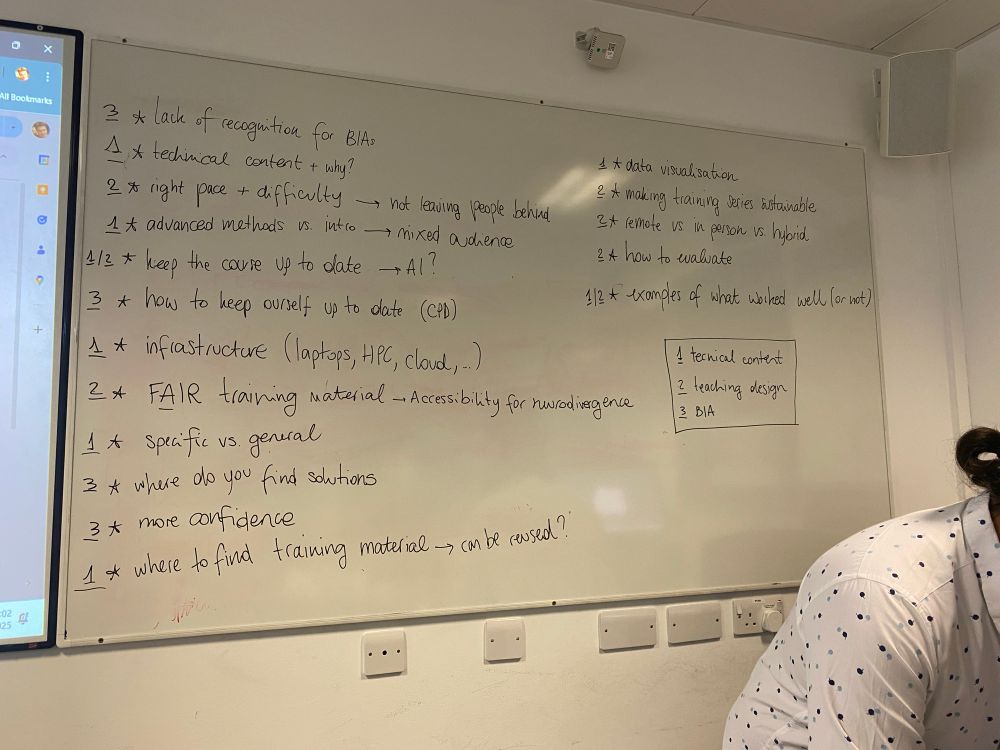 All Bookmarks
3 * lack of recognition for BIAs
1 * techinical content + why?
2 * right pace + difficulty → not leaving people behind
1 * advanced methods vs. intro → mixed audience
1/2 * keep the course up to date → AI?
3 * how to keep ourself up to date (CPD)
1 * infrastructure (laptops, HPC, cloud, ...)
2 * FAIR training material → Accessibility for neurodivergence
1 * specific vs. general
3 * where do you find solutions
3 * more confidence
1 * where to find training material → can be reused?
1 * data visualisation
2 * making training series sustainable
2 * remote vs in person vs. hybrid
2 * how to evaluate
1/2 * examples of what worked well (or not)
1 tecnical content
2 teaching design
3 BIA
:02
025